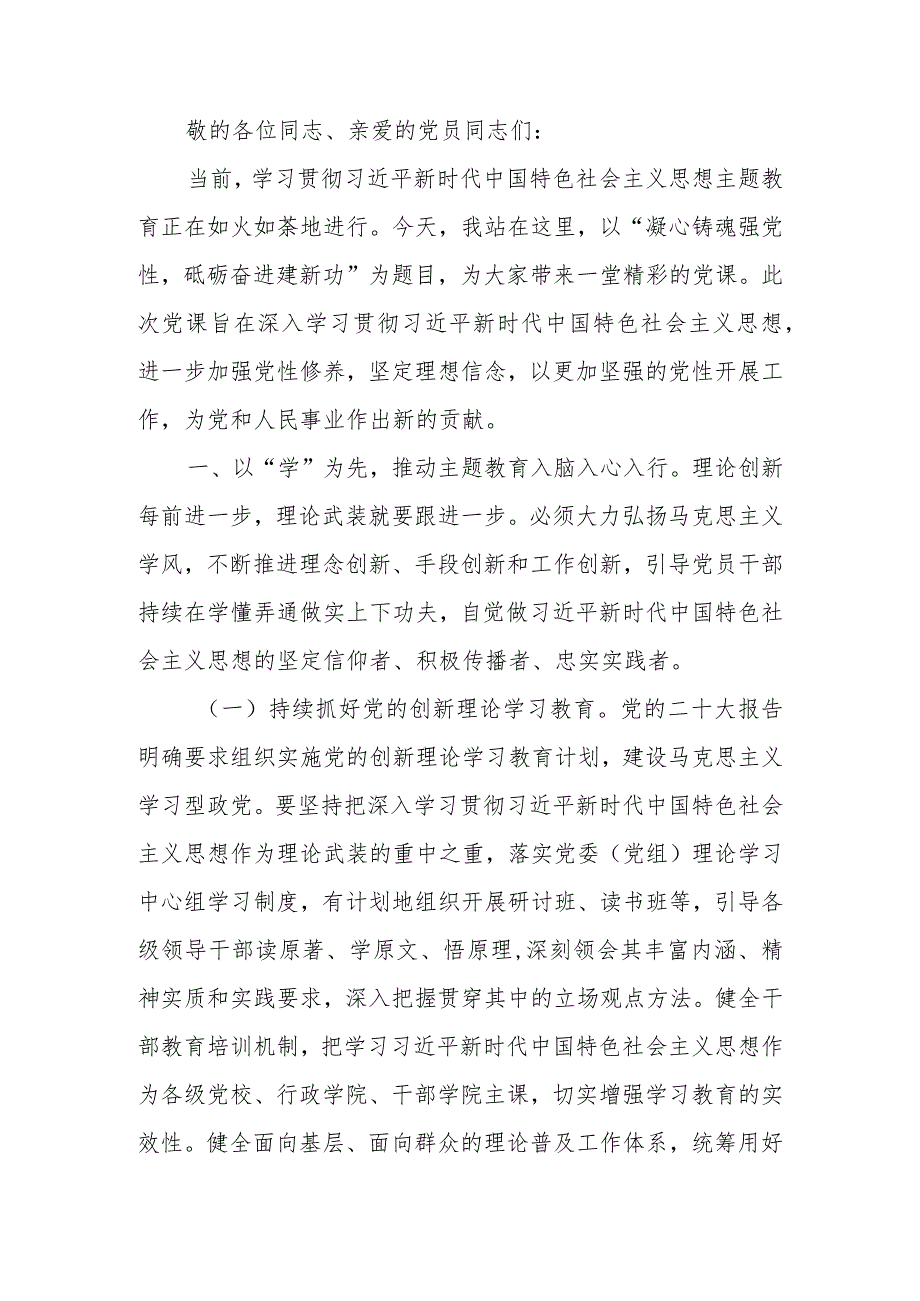 敬的各位同志、亲爱的党员同志们：
当前，学习贯彻习近平新时代中国特色社会主义思想主题教
育正在如火如荼地进行。今天，我站在这里，以“凝心铸魂强党
性，砥砺奋进建新功”为题目，为大家带来一堂精彩的党课。此
次党课旨在深入学习贯彻习近平新时代中国特色社会主义思想，
进一步加强党性修养，坚定理想信念，以更加坚强的党性开展工
作，为党和人民事业作出新的贡献。
一、以“学”为先，推动主题教育入脑入心入行。理论创新
每前进一步，理论武装就要跟进一步。必须大力弘扬马克思主义
学风，不断推进理念创新、手段创新和工作创新，引导党员干部
持续在学懂弄通做实上下功夫，自觉做习近平新时代中国特色社
会主义思想的坚定信仰者、积极传播者、忠实实践者。
（一）持续抓好党的创新理论学习教育。党的二十大报告
明确要求组织实施党的创新理论学习教育计划，建设马克思主义
学习型政党。要坚持把深入学习贯彻习近平新时代中国特色社会
主义思想作为理论武装的重中之重，落实党委（党组）理论学习
中心组学习制度，有计划地组织开展研讨班、读书班等，引导各
级领导干部读原著、学原文、悟原理,深刻领会其丰富内涵、精
神实质和实践要求，深入把握贯穿其中的立场观点方法。健全干
部教育培训机制，把学习习近平新时代中国特色社会主义思想作
为各级党校、行政学院、干部学院主课，切实增强学习教育的实
效性。健全面向基层、面向群众的理论普及工作体系，统筹用好